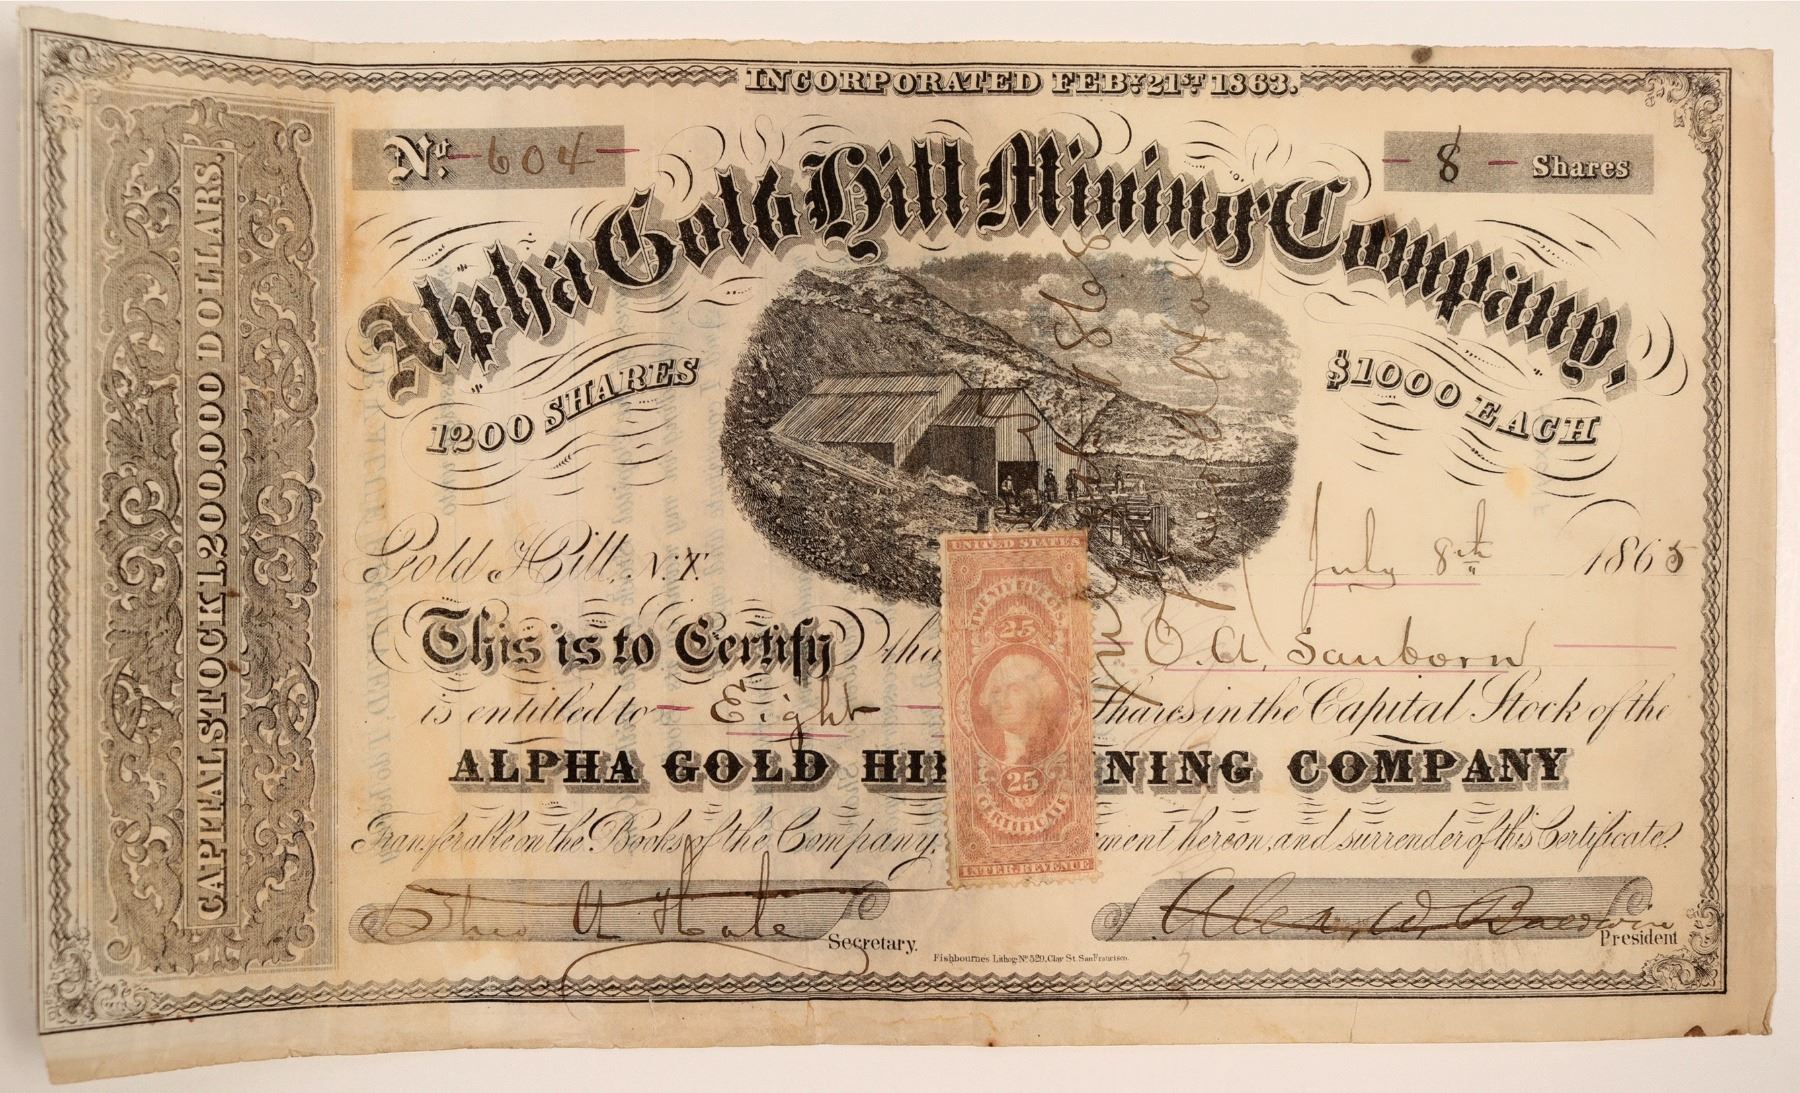 INCORPORATED FEBY. 21ST 1863.
No. 604
8 Shares
Alpha Gold Hill Mining Company,
1200 SHARES
$1000 EACH
CAPITAL STOCK 1,200,000 DOLLARS.
Gold Hill, N.T.
July 8th 1865
This is to Certify tha O. A. Sanborn
is entitled to Eight Shares in the Capital Stock of the
ALPHA GOLD HI NING COMPANY
Transferable on the Books of the Company, ment hereon, and surrender of this Certificate.
UNITED STATES
TWENTY FIVE CTS.
25
25
CERTIFICATE
INTER. REVENUE
Theo A Hale
Secretary.
Alex. W. Baldwin
President
Fishbourne's Lithog: No. 529, Clay St. San Francisco.